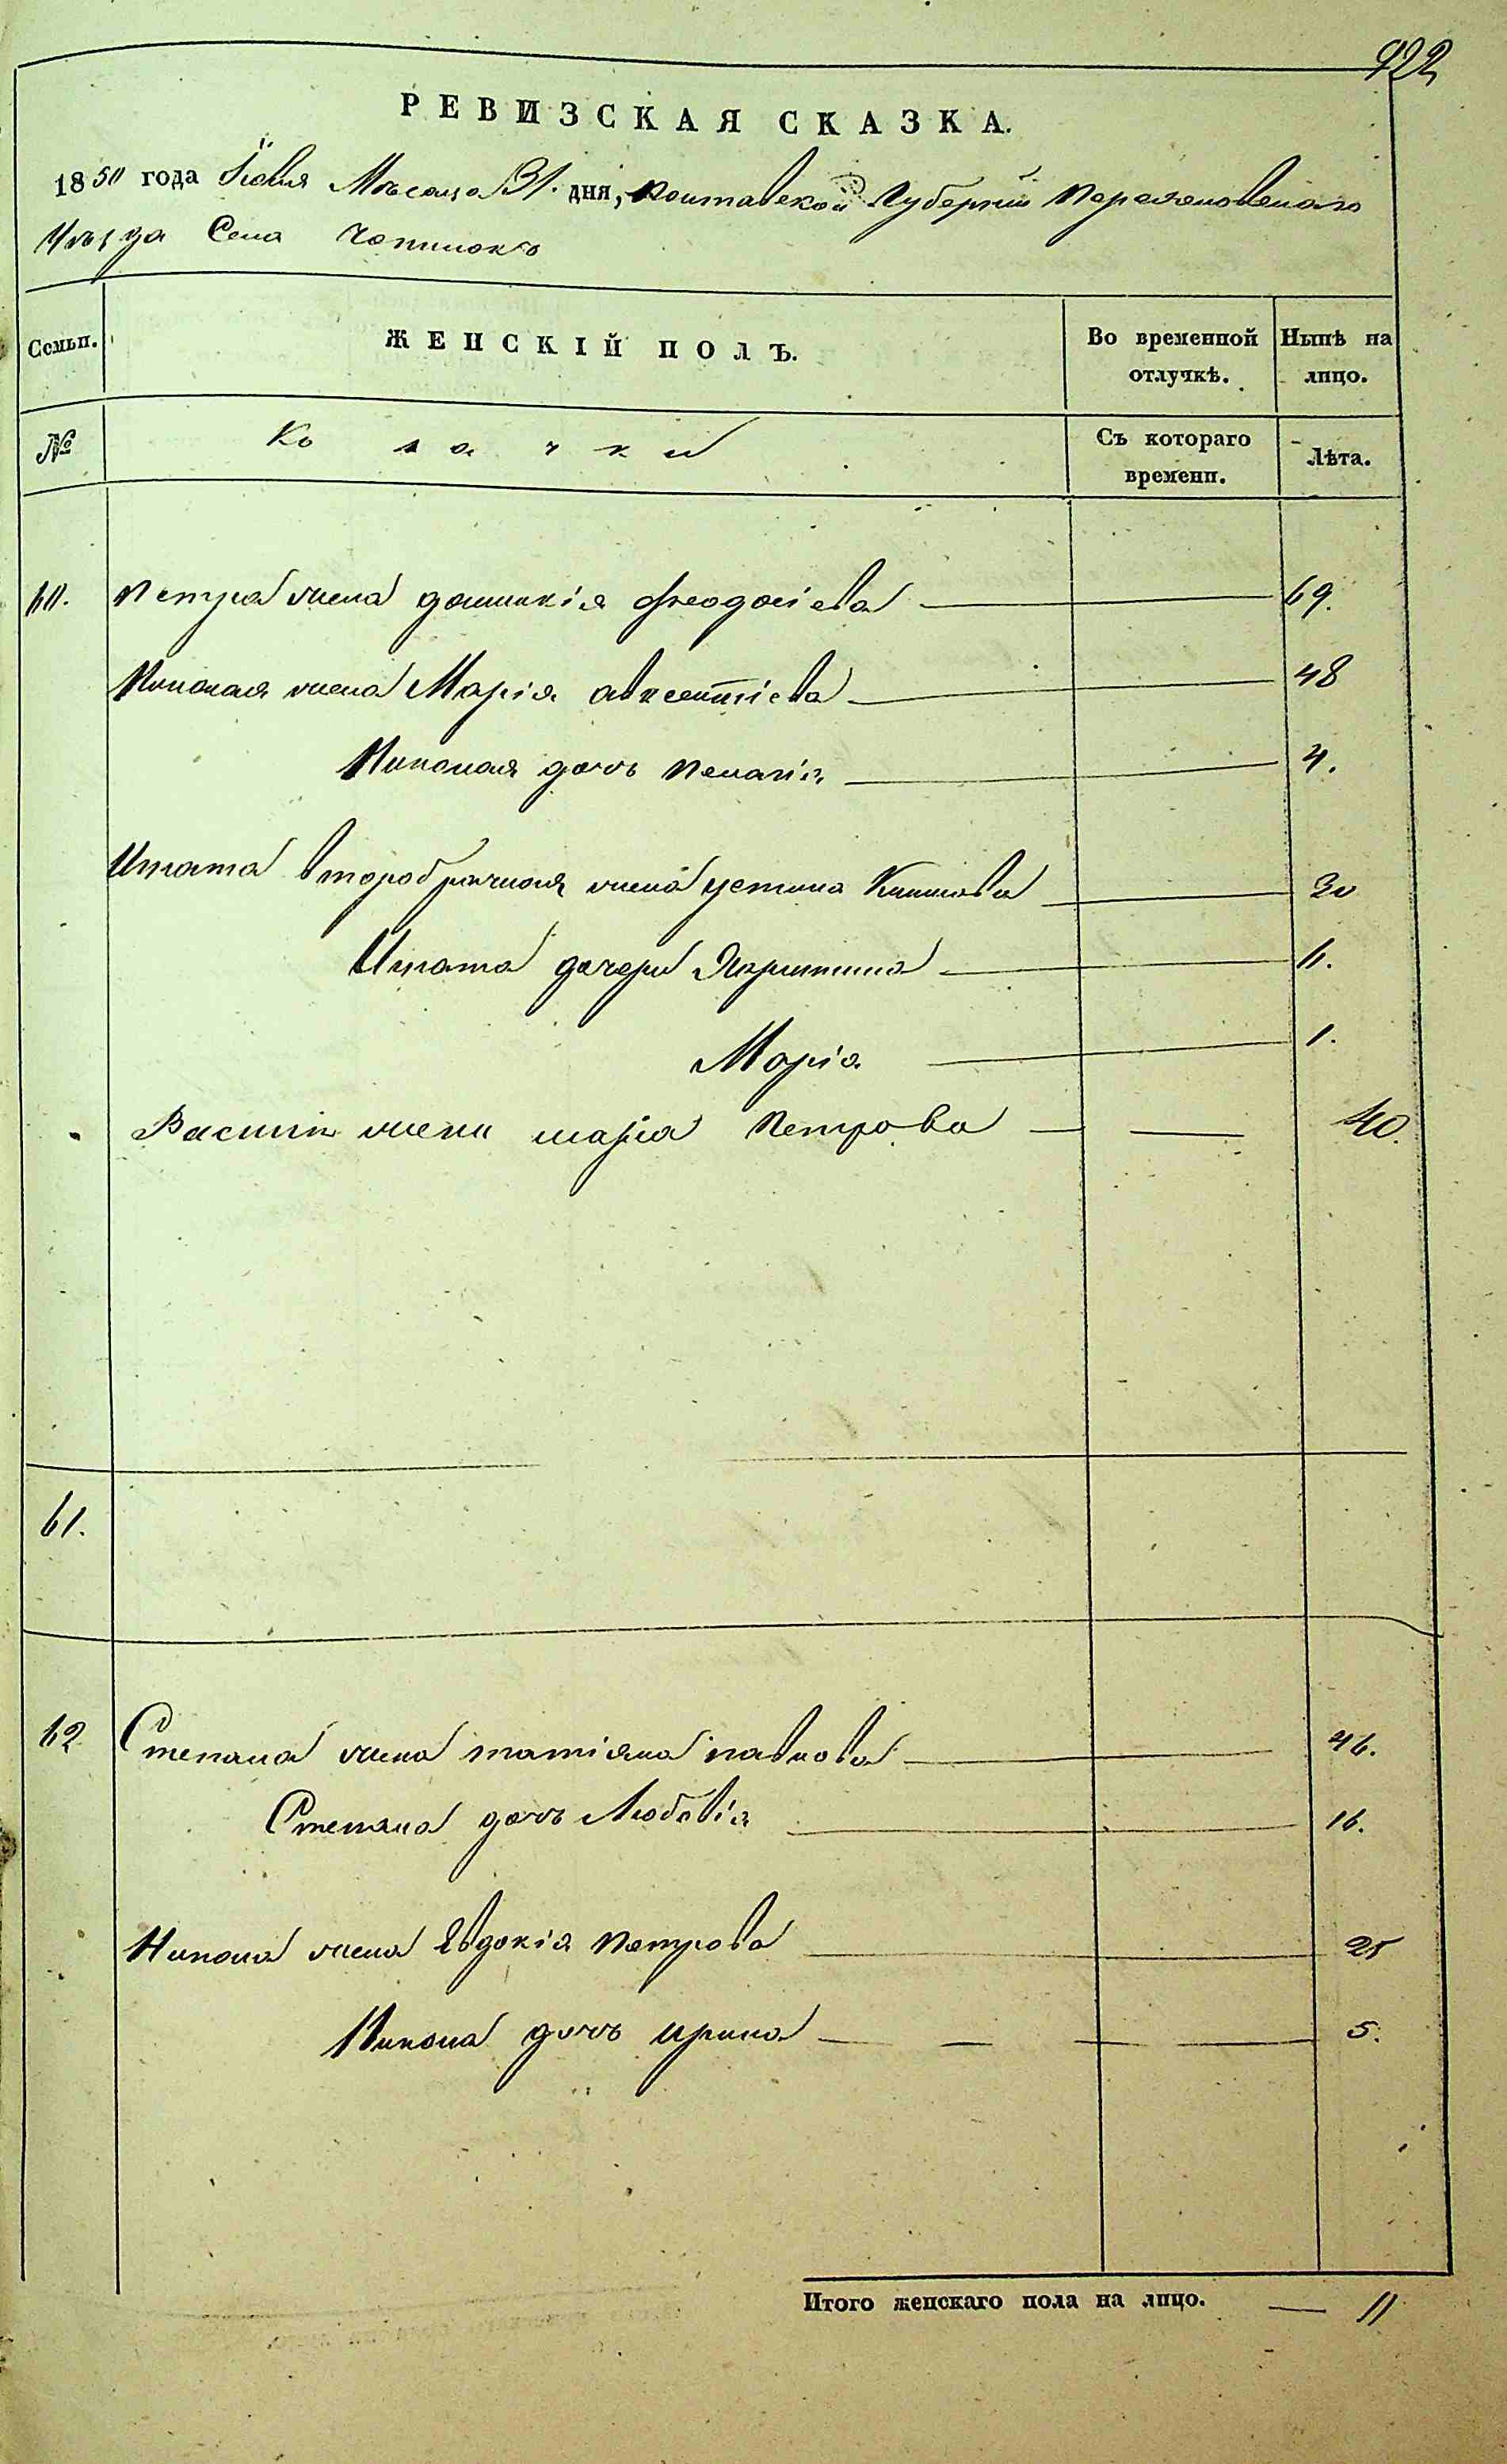 922
РЕВИЗСКАЯ СКАЗКА.
1850 года Июня Месяца 31. дня, Полтавской Губерніи Переяславскаго
Уезда Села Чопилокъ
Семьи.
ЖЕНСКІЙ ПОЛЪ.
Во временной отлучкѣ.
Нынѣ на лицо.
№
Козачки
Съ котораго времени.
Лѣта.
60. Петра жена Домникія Феодосіева 69.
Николая жена Марія Авксентіева 48
Николая дочь Пелагія 4.
Игната второбрачная жена Устина Климова 30
Игната дочери 6.
Марія 1.
Василія жена Марія Петрова 40.
61.
62 Степана жена Татіяна Павлова 46.
Степана дочь Любовія 16.
Никона жена Евдокія Петрова 25
Никона дочь Ирина 5.
Итого женскаго пола на лицо. — 11